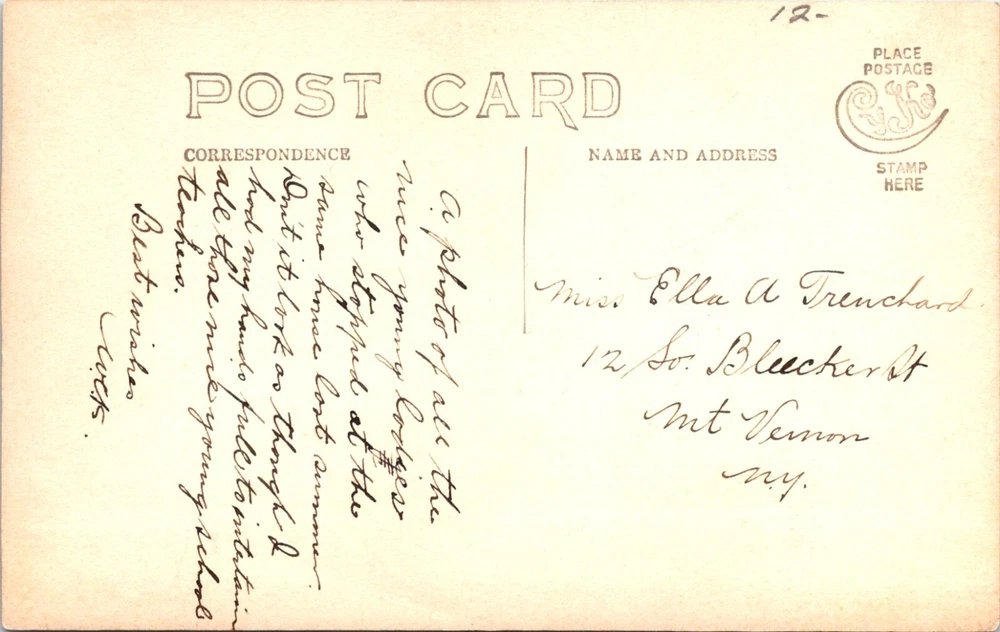 12-
POST CARD
PLACE
POSTAGE
CyKo
STAMP
HERE
CORRESPONDENCE
NAME AND ADDRESS
A photo of all the
nice young ladies
who stopped at the
same house last summer.
Don't it look as though I
had my hands full to intertain
all those nice young school
teachers.
Best wishes
Miss Ella A Trenchard
12 So. Bleecker St
Mt Vernon
N.Y.